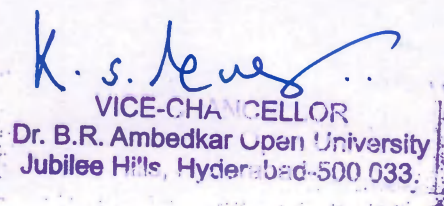 K. s.
VICE-CHANCELLOR
Dr. B.R. Ambedkar Open University
Jubilee Hills, Hyderabad-500 033.